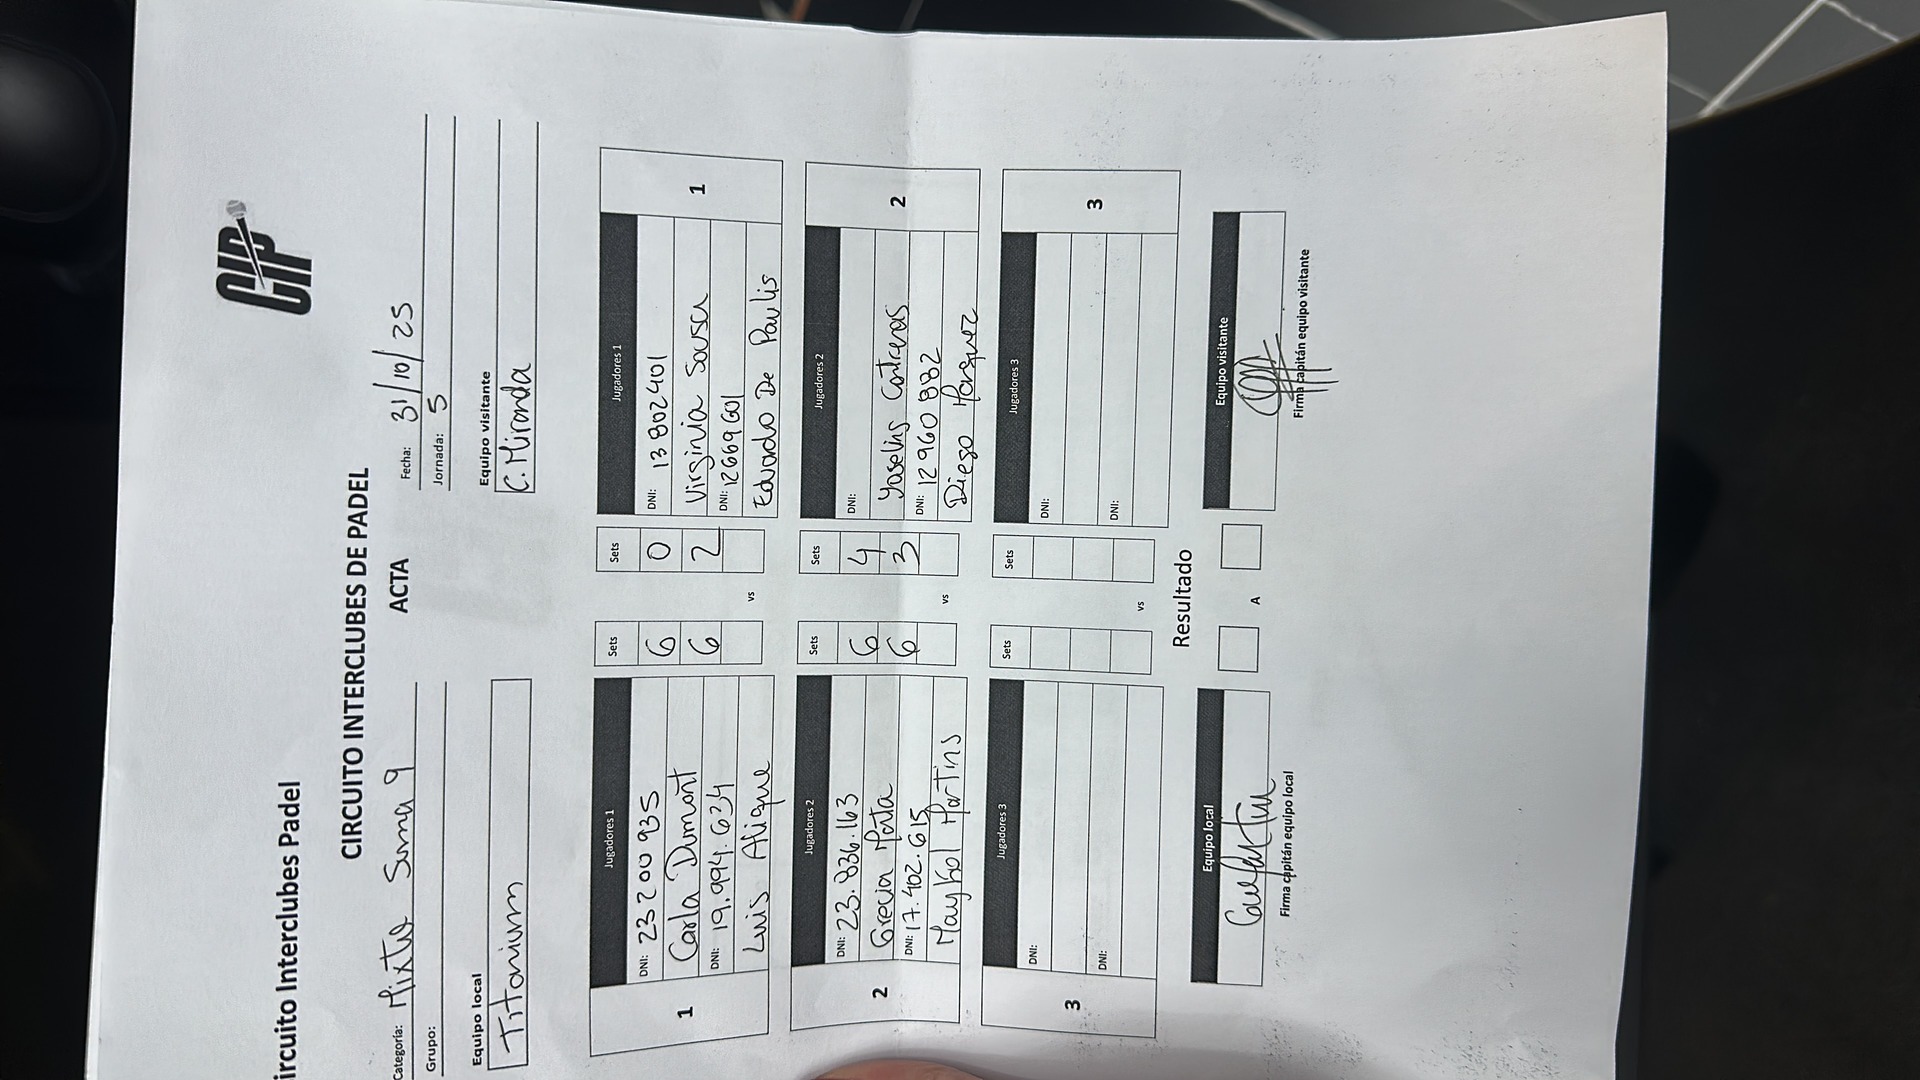 ircuito Interclubes Padel
CIP
CIRCUITO INTERCLUBES DE PADEL
ACTA
Categoría: Mixto Suma 9
Fecha: 31/10/25
Grupo:
Jornada: 5
Equipo local
Equipo visitante
Titanium
C. Miranda
Jugadores 1 Sets Sets Jugadores 1
1
DNI: 23200935 6 0 DNI: 13802401
Carla Dumont 6 2 Virginia Sousa
DNI: 19.994.634 DNI: 12669601
Luis Alique vs Eduardo De Paulis
1
Jugadores 2 Sets Sets Jugadores 2
2
DNI: 23.836.163 6 4 DNI:
Grecia Mata 6 3 Yoselins Contreras
DNI: 17.402.615 DNI: 12960882
Maykol Martins vs Diego Marquez
2
Jugadores 3 Sets Sets Jugadores 3
3
DNI: DNI:
DNI: DNI:
vs
3
Resultado
Equipo local A Equipo visitante
Firma capitán equipo local
Firma capitán equipo visitante